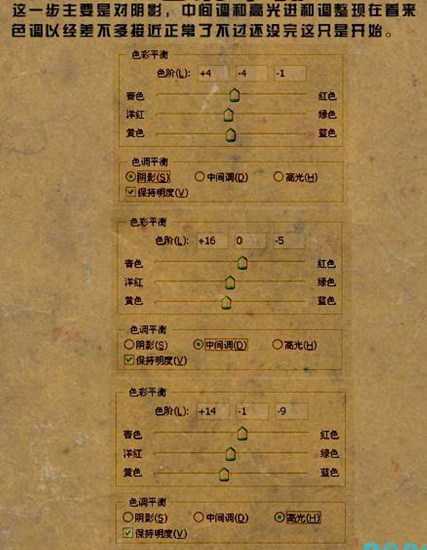 这一步主要是对阴影，中间调和高光进和调整现在看来
色调以经差不多接近正常了不过还没完这只是开始。
色彩平衡
色阶(L): +4 -4 -1
青色 红色
洋红 绿色
黄色 蓝色
色调平衡
阴影(S) 中间调(D) 高光(H)
保持明度(V)
色彩平衡
色阶(L): +16 0 -5
青色 红色
洋红 绿色
黄色 蓝色
色调平衡
阴影(S) 中间调(D) 高光(H)
保持明度(V)
色彩平衡
色阶(L): +14 -1 -9
青色 红色
洋红 绿色
黄色 蓝色
色调平衡
阴影(S) 中间调(D) 高光(H)
保持明度(V)